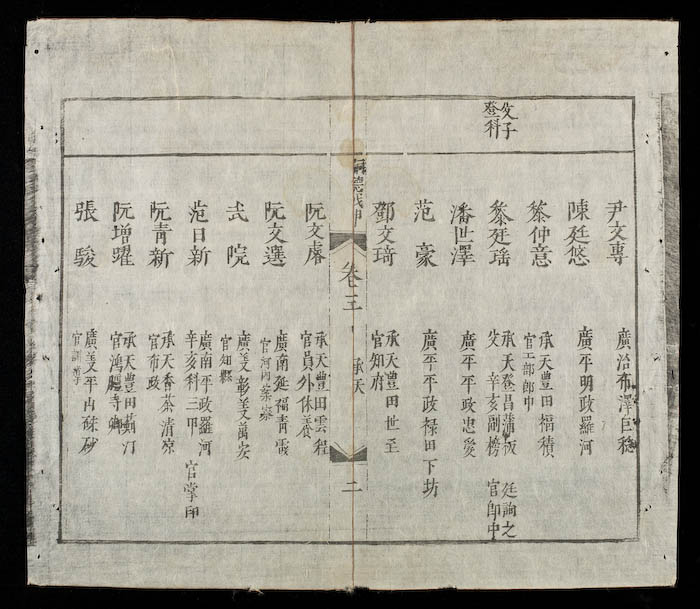 父子
登科
尹文專
廣治布澤巨
陳廷悠
廣平明政羅河
黎仲意
承天豐田福積
官工部郎中
黎廷瑶
承天登昌蒲板 廷詢之
父 辛亥副榜 官郎中
潘世澤
廣平平政忠愛
范豪
廣平平政禄田下坊
鄧文琦
承天豐田世至
官知府
嗣德戊申
卷三
承天
二
阮文睿
承天豐田雲程
官員外休養
阮文選
廣南延福青霞
官河內案察
武院
廣義彰義萬安
官知縣
范日新
廣南平政羅河
辛亥科三甲 官掌印
阮青新
承天香茶清凉
官布政
阮增躍
承天豐田薊汀
官鴻臚寺卿
張駿
廣義平山硃砂
官訓導